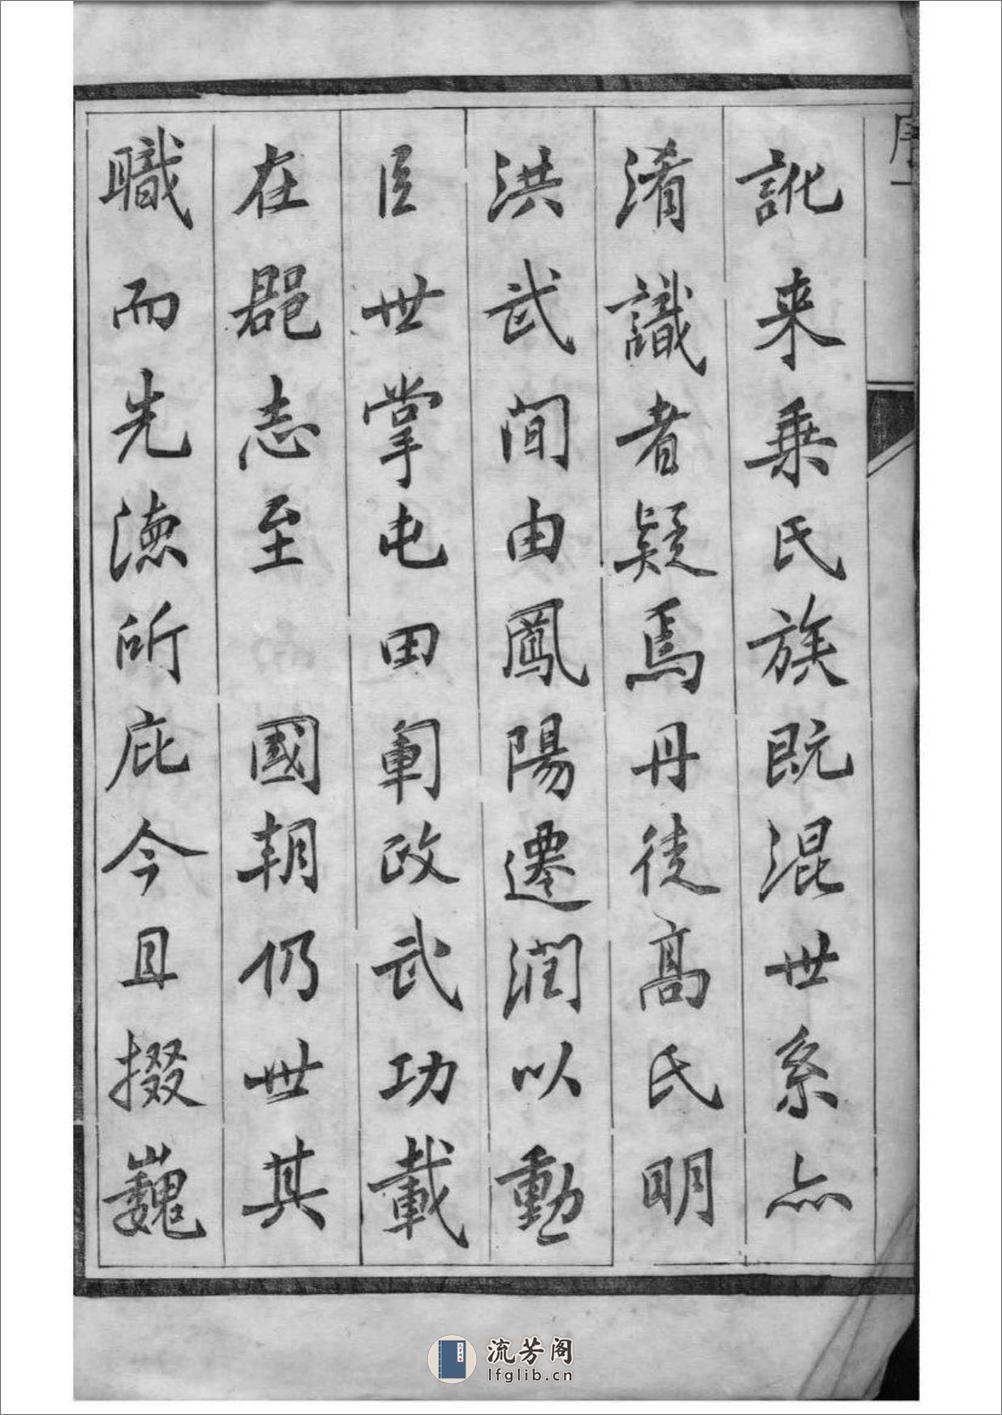 序一
訛来乗氏族既混世系亦
淆識者疑焉丹徒髙氏明
洪武間由鳳陽遷潤以勳
臣世掌屯田軍政武功載
在郡志至 國朝仍世其
職而先徳所庇今且掇巍
流芳阁
lfglib.cn